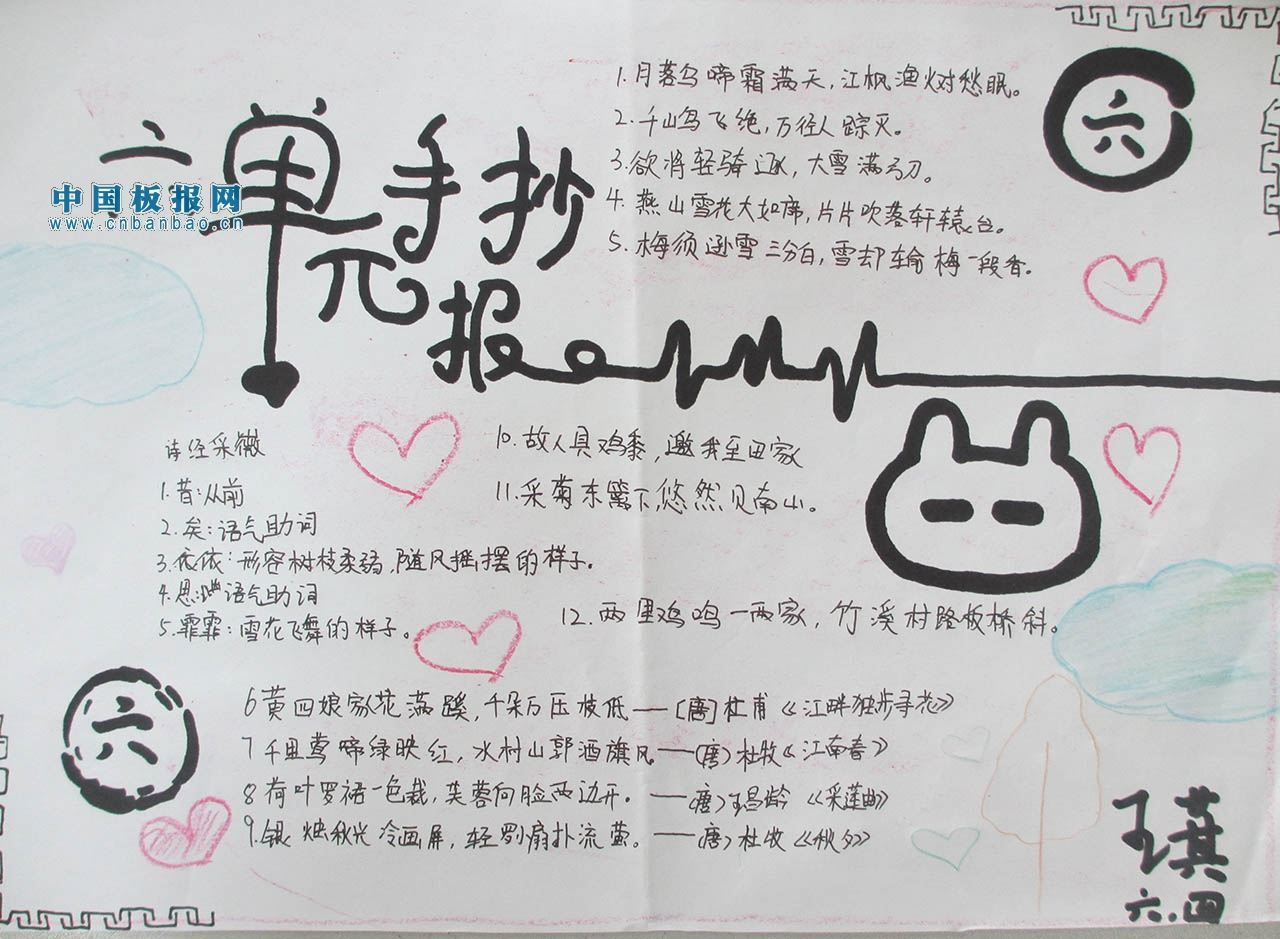 六单元手抄报
中国板报网
www.cnbanbao.cn
六
1.月落乌啼霜满天,江枫渔火对愁眠。
2.千山鸟飞绝,万径人踪灭。
3.欲将轻骑逐,大雪满弓刀。
4.燕山雪花大如席,片片吹落轩辕台。
5.梅须逊雪三分白,雪却输梅一段香。
诗经采薇
1.昔:从前
2.矣:语气助词
3.依依:形容树枝柔弱,随风摇摆的样子。
4.思:语气助词
5.霏霏:雪花飞舞的样子。
10.故人具鸡黍,邀我至田家
11.采菊东篱下,悠然见南山。
12.两里鸡鸣一两家,竹溪村路板桥斜。
六
6黄四娘家花满蹊,千朵万压枝低——[唐]杜甫《江畔独步寻花》
7千里莺啼绿映红,水村山郭酒旗风。——(唐)杜牧《江南春》
8荷叶罗裙一色裁,芙蓉向脸两边开。——(唐)王昌龄《采莲曲》
9.银烛秋光冷画屏,轻罗扇扑流萤。——(唐)杜牧《秋夕》
王
六.四